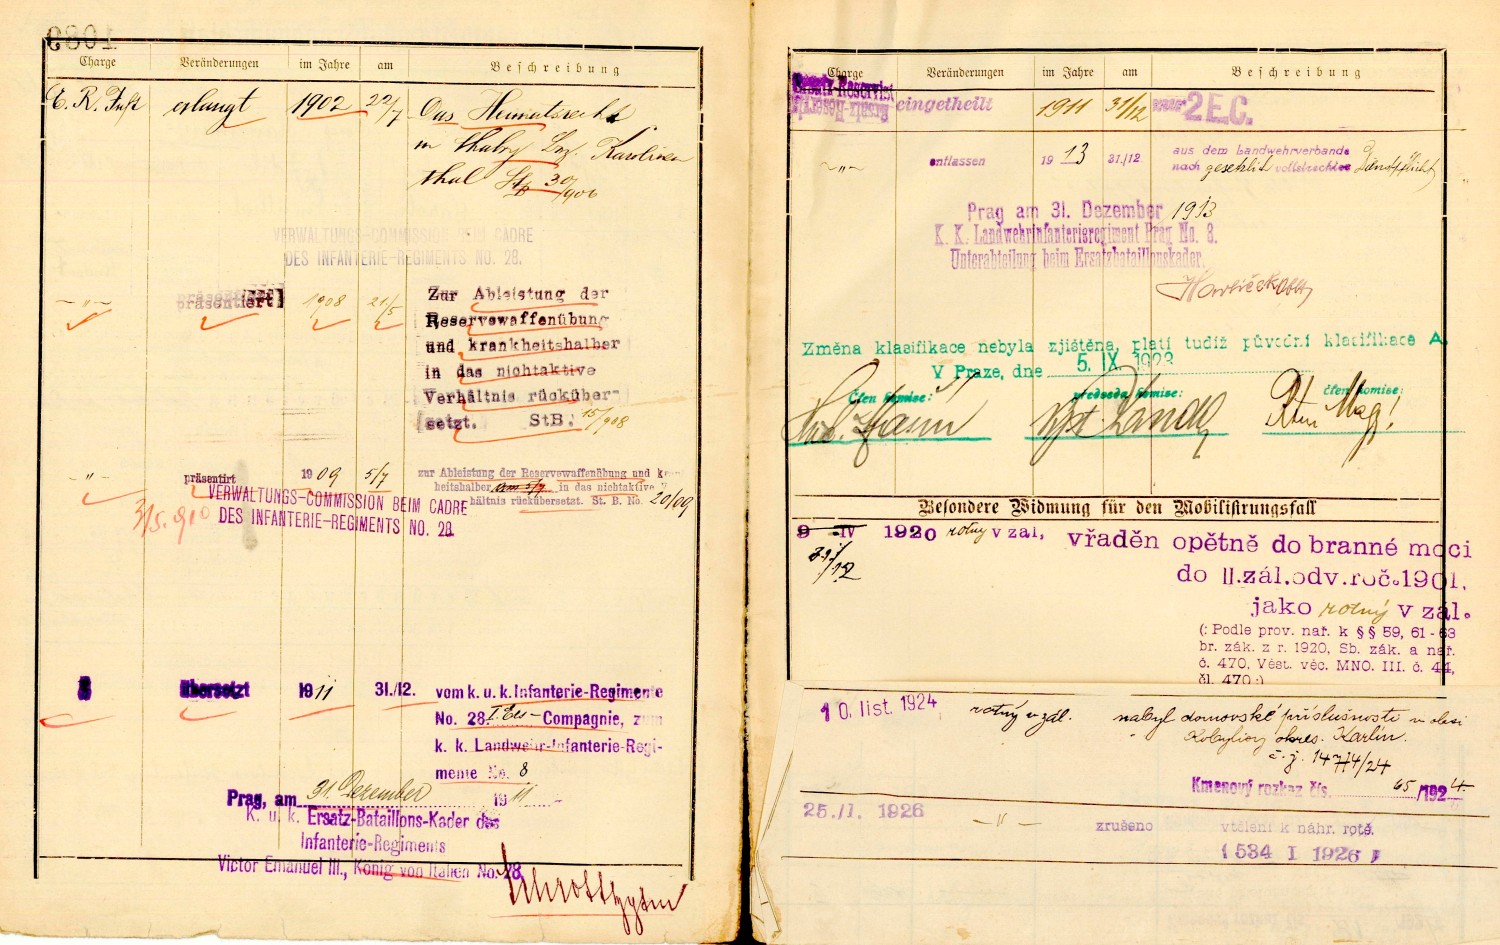 Charge Veränderungen im Jahre am Beschreibung
E. R. Inft erlangt 1902 22/7 Das Heimatsrecht
in Chabry Bez. Karolinen
thal StB 30/906
VERWALTUNGS-COMMISSION BEIM CADRE
DES INFANTERIE-REGIMENTS NO. 28.
—„— präsentiert 1908 21/5 Zur Ableistung der
Reservewaffenübung
und krankheitshalber
in das nichtaktive
Verhältnis rücküber-
setzt. StB. 15/908
—„— präsentirt 1909 5/7 zur Ableistung der Reservewaffenübung und
heitshalber in das nichtaktive
hältnis rückübersetzt. St. B. No. 20/09
VERWALTUNGS-COMMISSION BEIM CADRE
DES INFANTERIE-REGIMENTS NO. 28.
31/5. 910
übersetzt 1911 31./12. vom k. u. k. Infanterie-Regimente
No. 28 Compagnie, zum
k. k. Landwehr-Infanterie-Regi-
mente No. 8
Prag, am 31. Dezember 1911
K. u. k. Ersatz-Bataillons-Kader des
Infanterie-Regiments
Victor Emanuel III., König von Italien No. 28
Charge Veränderungen im Jahre am Beschreibung
Ersatz-Reservist eingetheilt 1911 31/12 2E.C.
—„— entlassen 1913 31./12. aus dem Landwehrverbande
nach gesetzlich vollstreckter Dienstpflicht
Prag am 31. Dezember 1913
K. K. Landwehrinfanterieregiment Prag No. 8.
Unterabteilung beim Ersatzbataillonskader.
Změna klasifikace nebyla zjištěna, platí tudíž původní klasifikace A
V Praze, dne 5. IX 1923
Člen komise: předseda komise: člen komise:
Besondere Widmung für den Mobilisirungsfall
9 IV 1920 rotný v zál, vřaděn opětně do branné moci
do II.zál.odv.roč.1901,
jako rotný v zál.
(: Podle prov. nař. k §§ 59, 61-63
br. zák. z r. 1920, Sb. zák. a nař.
č. 470, Věst. věc. MNO. III. č. 44,
čl. 470:)
10. list. 1924 rotný v zál. nabyl domovské příslušnosti v obci
Kobylisy okres. Karlín.
č. j. 14774/24
Kmenový rozkaz čís. 65/1924.
25./I. 1926 —„— zrušeno vtělení k náhr. rotě.
(534 I 1926)